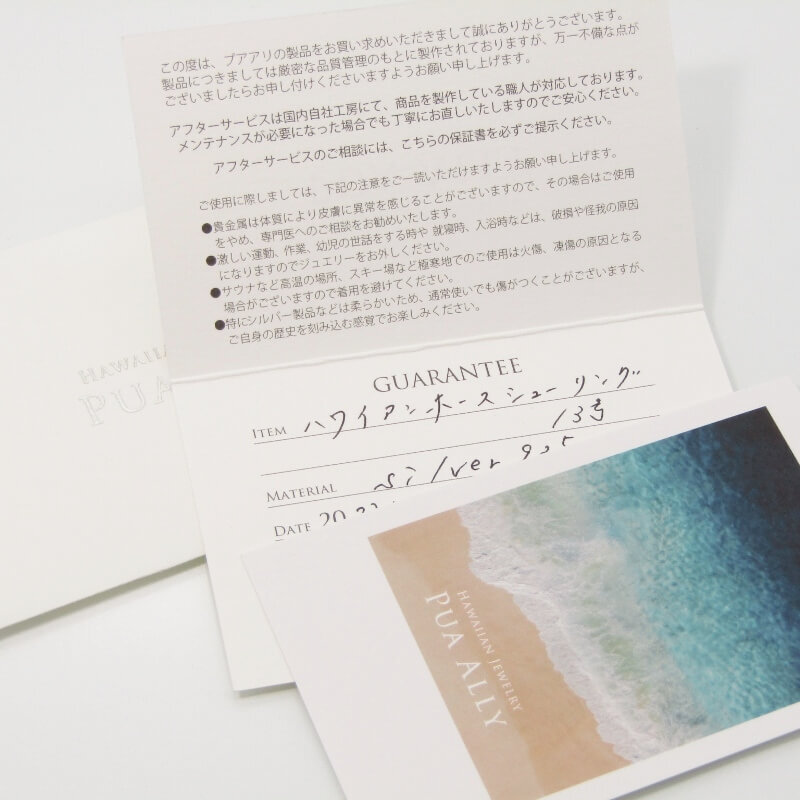 この度は、プアアリの製品をお買い求めいただきまして誠にありがとうございます。
製品につきましては厳密な品質管理のもとに製作されておりますが、万一不備な点が
ございましたらお申し付けくださいますようお願い申し上げます。
アフターサービスは国内自社工房にて、商品を製作している職人が対応しております。
メンテナンスが必要になった場合でも丁寧にお直しいたしますのでご安心ください。
アフターサービスのご相談には、こちらの保証書を必ずご提示ください。
ご使用に際しましては、下記の注意をご一読いただけますようお願い申し上げます。
●貴金属は体質により皮膚に異常を感じることがございますので、その場合はご使用
をやめ、専門医へのご相談をお勧めいたします。
●激しい運動、作業、幼児の世話をする時や 就寝時、入浴時などは、破損や怪我の原因
になりますのでジュエリーをお外しください。
●サウナなど高温の場所、スキー場など極寒地でのご使用は火傷、凍傷の原因となる
場合がございますので着用を避けてください。
●特にシルバー製品などは柔らかいため、通常使いでも傷がつくことがございますが、
ご自身の歴史を刻み込む感覚でお楽しみください。
GUARANTEE
ITEM ハワイアンホースシューリング
13号
MATERIAL silver 925
DATE
HAWAIIAN
PUA
HAWAIIAN JEWELRY
PUA ALLY